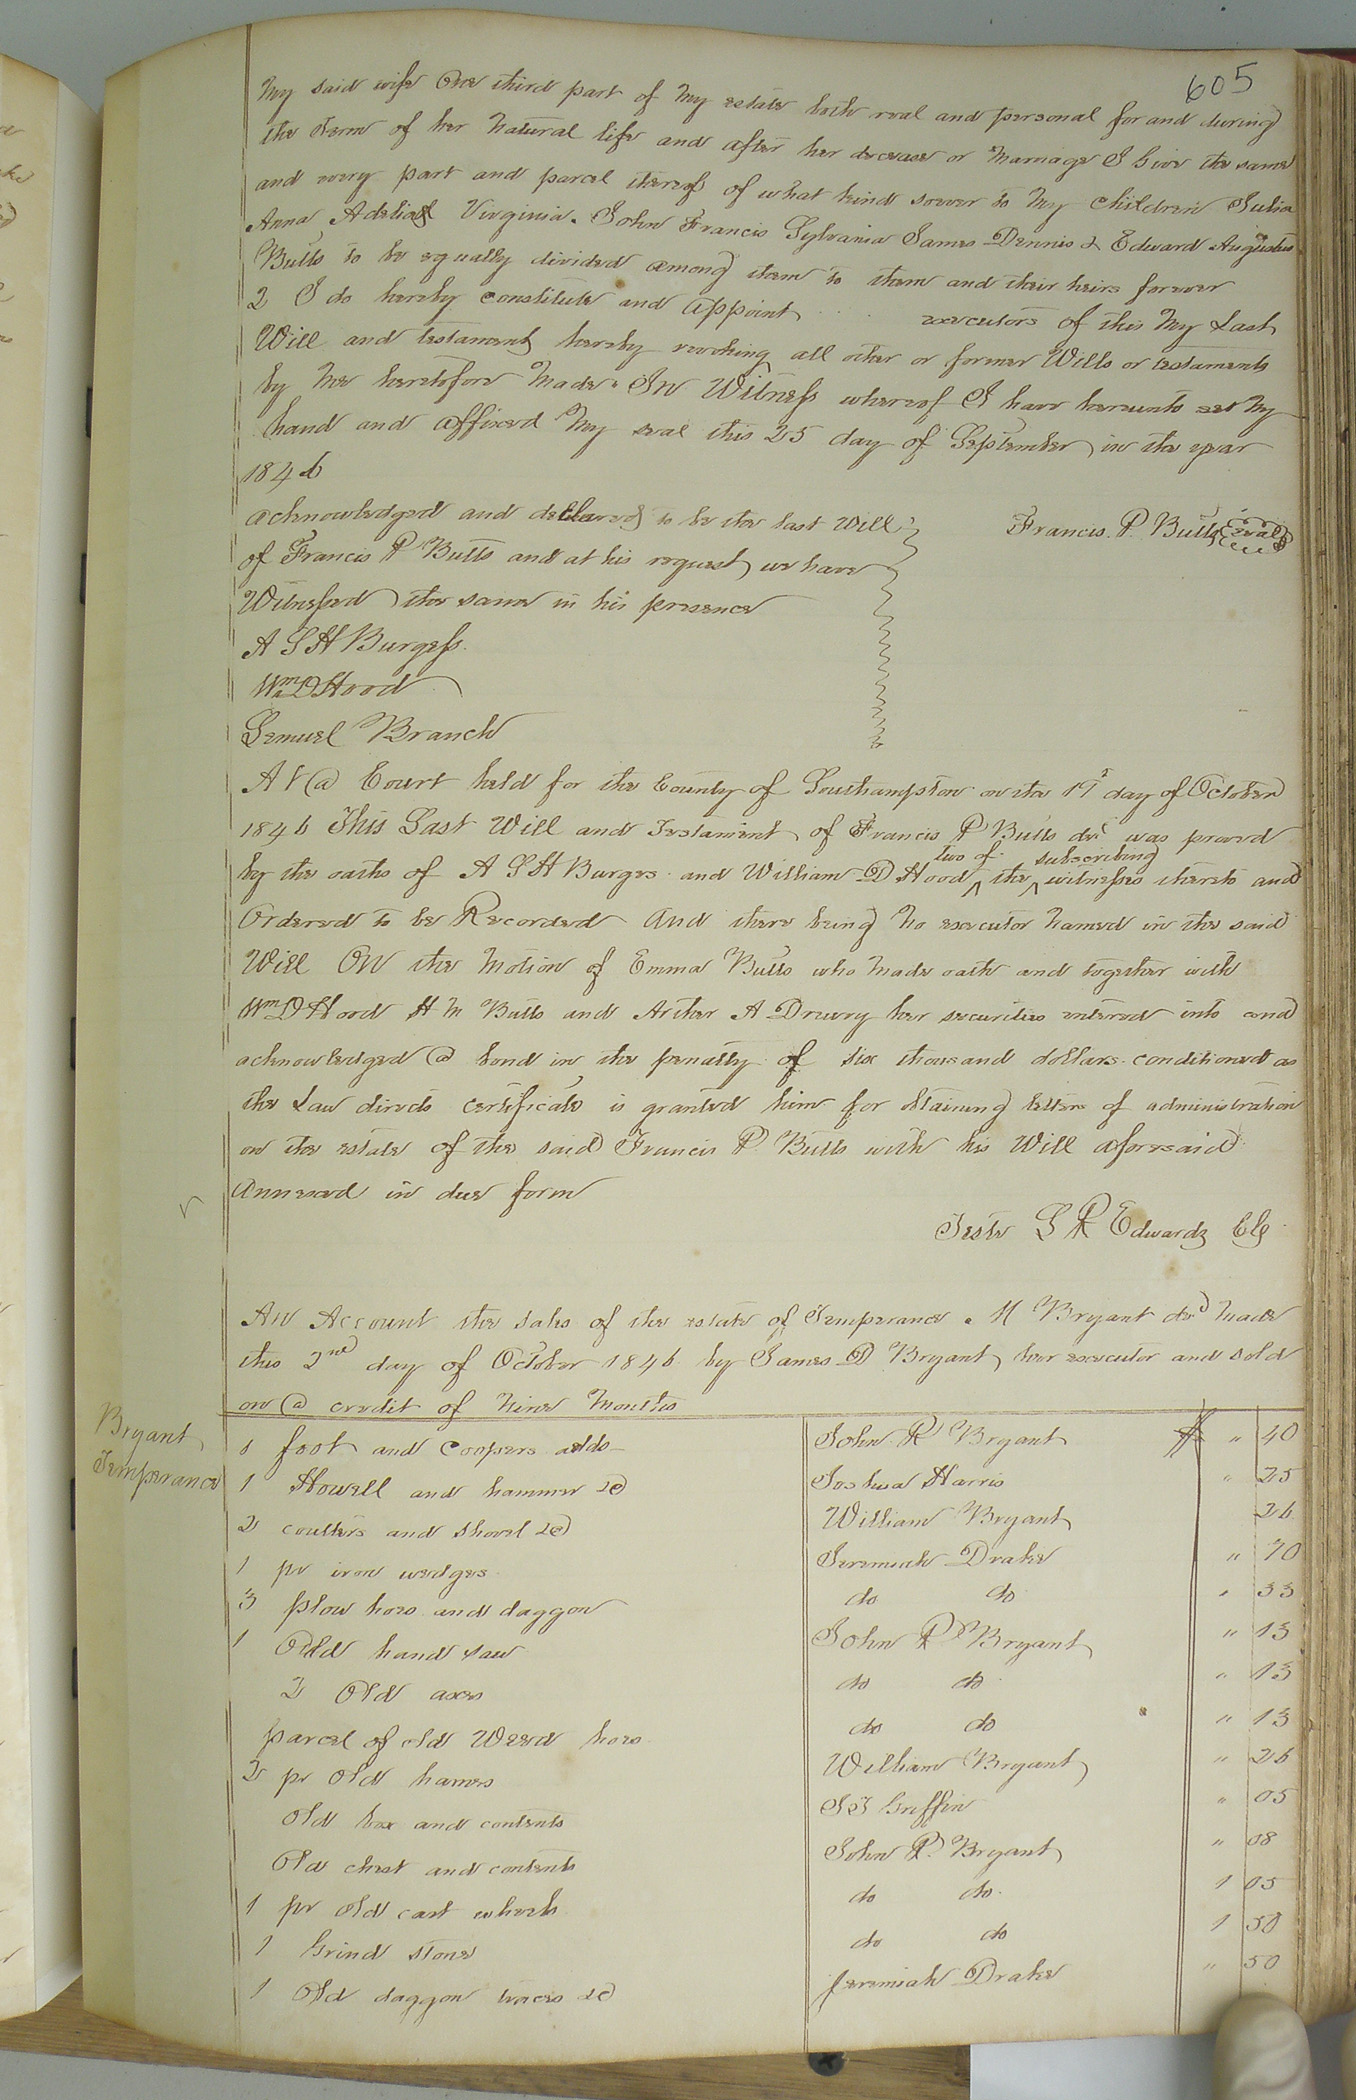 605
My said wife One third part of my estate both real and personal for and during
the term of her natural life and after her decease or marriage I Give the same
and every part and parcel thereof of what kind soever to my Children Julia
Anna Virginia John Francis Sylvania James Dennis & Edward Augustus
Butts to be equally divided among them to them and their heirs forever
2 I do hereby constitute and appoint .... executors of this my Last
Will and testament hereby revoking all other or former Wills or testaments
by me heretofore made. In Witness whereof I have hereunto set my
hand and affixed my seal this 25 day of September in the year
1846
Acknowledged and declared to be the last Will
of Francis P Butts and at his request we have
Witnessed the same in his presence
Francis. P. Butts seal
A S H Burgess.
Wm D Hood
Lemuel Branch
At a Court held for the County of Southampton on the 19th day of October
1846 This Last Will and Testament of Francis P Butts decd was proved
by the oaths of A S H Burges and William D Hood two of the subscribing witnesses thereto and
Ordered to be Recorded And there being no executor named in the said
Will On the Motion of Emma Butts who made oath and together with
Wm D Hood H M Butts and Arther A Drewry her securities entered into and
acknowledged a bond in the penalty of six thousand dollars conditioned as
the Law directs certificate is granted him for obtaining letters of administration
on the estate of the said Francis P Butts with his Will aforesaid
Annexed in due form
Teste L R Edwards Clk
An Account the sales of the estate of Temperance M Bryant decd made
this 2nd day of October 1846 by James D Bryant her executor and sold
on a credit of nine months
Bryant
Temperance
1 foot and Coopers addo John R Bryant $ " 40
1 Howell and hammer &c Joshua Harris " 25
2 coulters and shovel &c William Bryant 26
1 pr iron wedges Jeremiah Drake " 70
3 plow hoes and daggon do do " 33
1 Old hand saw John R Bryant " 13
2 Old axes do do " 13
parcel of old Weed hoes do do " 13
2 pr Old hames William Bryant " 26
Old box and contents Griffin " 05
Old chest and contents John R. Bryant " 08
1 pr Old cart wheels do do 1 05
1 Grind stone do do 1 50
1 Old daggon traces &c Jeremiah Drake " 50